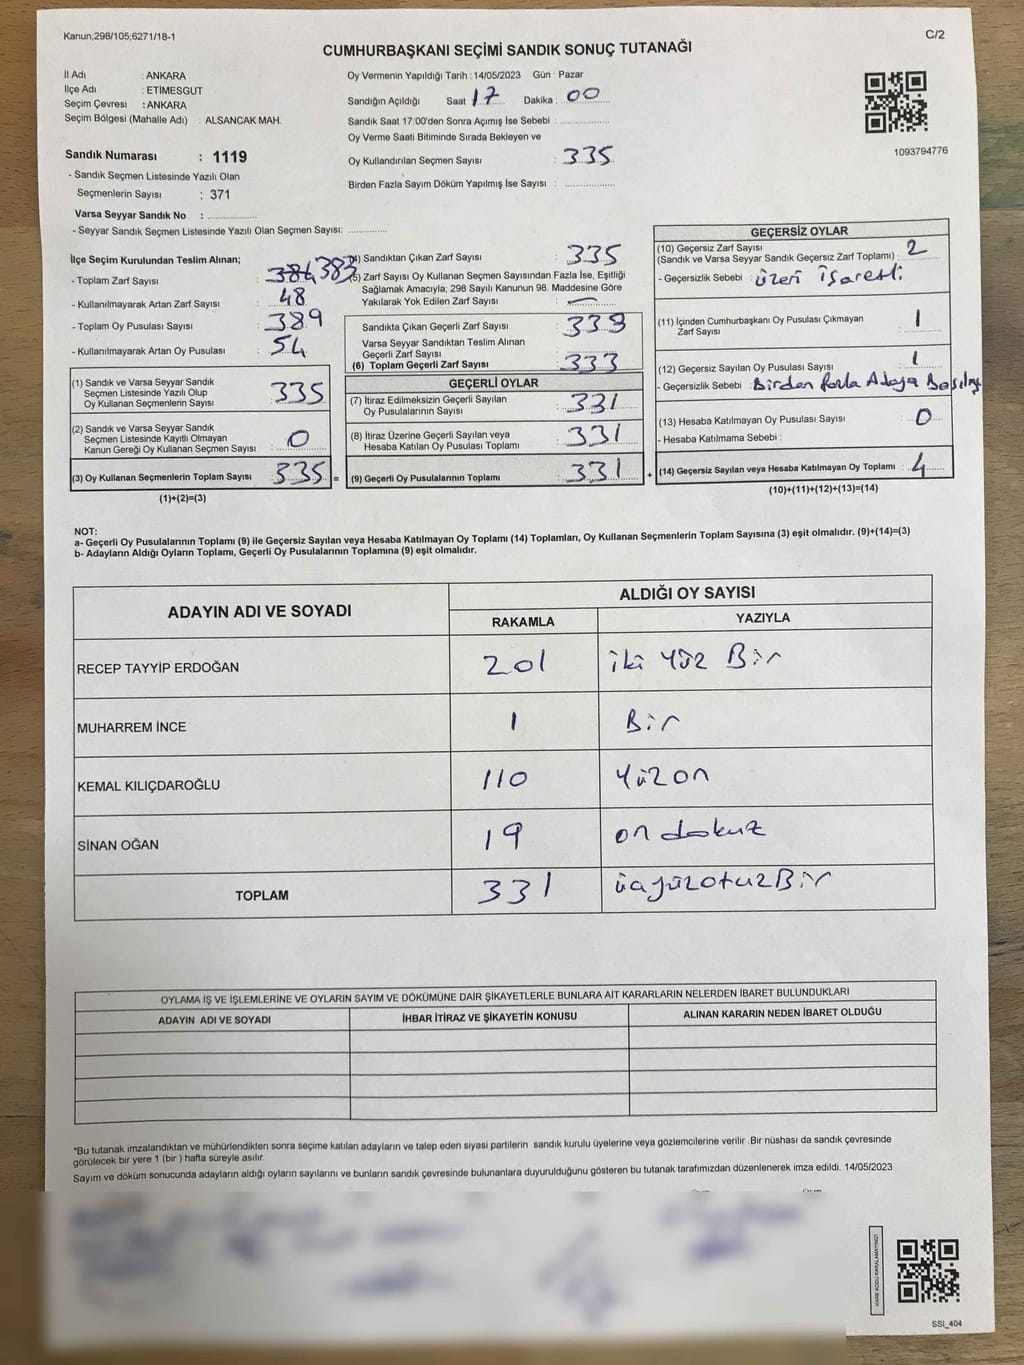 Kanun;298/105;6271/18-1
C/2
CUMHURBAŞKANI SEÇİMİ SANDIK SONUÇ TUTANAĞI
İl Adı : ANKARA
İlçe Adı : ETİMESGUT
Seçim Çevresi : ANKARA
Seçim Bölgesi (Mahalle Adı) : ALSANCAK MAH.
Sandık Numarası : 1119
- Sandık Seçmen Listesinde Yazılı Olan
Seçmenlerin Sayısı : 371
Varsa Seyyar Sandık No :
- Seyyar Sandık Seçmen Listesinde Yazılı Olan Seçmen Sayısı:
Oy Vermenin Yapıldığı Tarih : 14/05/2023 Gün : Pazar
Sandığın Açıldığı Saat 17 Dakika : 00
Sandık Saat 17:00'den Sonra Açımış İse Sebebi :
Oy Verme Saati Bitiminde Sırada Bekleyen ve
Oy Kullandırılan Seçmen Sayısı : 335
Birden Fazla Sayım Döküm Yapılmış İse Sayısı :
1093794776
İlçe Seçim Kurulundan Teslim Alınan;
- Toplam Zarf Sayısı : 383
- Kullanılmayarak Artan Zarf Sayısı : 48
- Toplam Oy Pusulası Sayısı : 389
- Kullanılmayarak Artan Oy Pusulası : 54
(1) Sandık ve Varsa Seyyar Sandık
Seçmen Listesinde Yazılı Olup
Oy Kullanan Seçmenlerin Sayısı : 335
(2) Sandık ve Varsa Seyyar Sandık
Seçmen Listesinde Kayıtlı Olmayan
Kanun Gereği Oy Kullanan Seçmen Sayısı : 0
(3) Oy Kullanan Seçmenlerin Toplam Sayısı : 335 =
(1)+(2)=(3)
(4) Sandıktan Çıkan Zarf Sayısı : 335
(5) Zarf Sayısı Oy Kullanan Seçmen Sayısından Fazla İse, Eşitliği
Sağlamak Amacıyla; 298 Sayılı Kanunun 98. Maddesine Göre
Yakılarak Yok Edilen Zarf Sayısı : —
Sandıkta Çıkan Geçerli Zarf Sayısı : 333
Varsa Seyyar Sandıktan Teslim Alınan
Geçerli Zarf Sayısı :
(6) Toplam Geçerli Zarf Sayısı : 333
GEÇERLİ OYLAR
(7) İtiraz Edilmeksizin Geçerli Sayılan
Oy Pusulalarının Sayısı : 331
(8) İtiraz Üzerine Geçerli Sayılan veya
Hesaba Katılan Oy Pusulası Toplamı : 331
(9) Geçerli Oy Pusulalarının Toplamı : 331 +
GEÇERSİZ OYLAR
(10) Geçersiz Zarf Sayısı
(Sandık ve Varsa Seyyar Sandık Geçersiz Zarf Toplamı) : 2
- Geçersizlik Sebebi : üzeri işaretli
(11) İçinden Cumhurbaşkanı Oy Pusulası Çıkmayan
Zarf Sayısı : 1
(12) Geçersiz Sayılan Oy Pusulası Sayısı : 1
- Geçersizlik Sebebi : Birden fazla Adaya Basılmış
(13) Hesaba Katılmayan Oy Pusulası Sayısı : 0
- Hesaba Katılmama Sebebi :
(14) Geçersiz Sayılan veya Hesaba Katılmayan Oy Toplamı : 4
(10)+(11)+(12)+(13)=(14)
NOT:
a- Geçerli Oy Pusulalarının Toplamı (9) ile Geçersiz Sayılan veya Hesaba Katılmayan Oy Toplamı (14) Toplamları, Oy Kullanan Seçmenlerin Toplam Sayısına (3) eşit olmalıdır. (9)+(14)=(3)
b- Adayların Aldığı Oyların Toplamı, Geçerli Oy Pusulalarının Toplamına (9) eşit olmalıdır.
ADAYIN ADI VE SOYADI
ALDIĞI OY SAYISI
RAKAMLA YAZIYLA
RECEP TAYYİP ERDOĞAN 201 iki yüz Bir
MUHARREM İNCE 1 Bir
KEMAL KILIÇDAROĞLU 110 Yüz on
SİNAN OĞAN 19 on dokuz
TOPLAM 331 üçyüzotuzBir
OYLAMA İŞ VE İŞLEMLERİNE VE OYLARIN SAYIM VE DÖKÜMÜNE DAİR ŞİKAYETLERLE BUNLARA AİT KARARLARIN NELERDEN İBARET BULUNDUKLARI
ADAYIN ADI VE SOYADI İHBAR İTİRAZ VE ŞİKAYETİN KONUSU ALINAN KARARIN NEDEN İBARET OLDUĞU
*Bu tutanak imzalandıktan ve mühürlendikten sonra seçime katılan adayların ve talep eden siyasi partilerin sandık kurulu üyelerine veya gözlemcilerine verilir .Bir nüshası da sandık çevresinde
görülecek bir yere 1 (bir ) hafta süreyle asılır.
Sayım ve döküm sonucunda adayların aldığı oyların sayılarını ve bunların sandık çevresinde bulunanlara duyurulduğunu gösteren bu tutanak tarafımızdan düzenlenerek imza edildi. 14/05/2023
KARE KODU KARALAMAYINIZ!
SSI_404